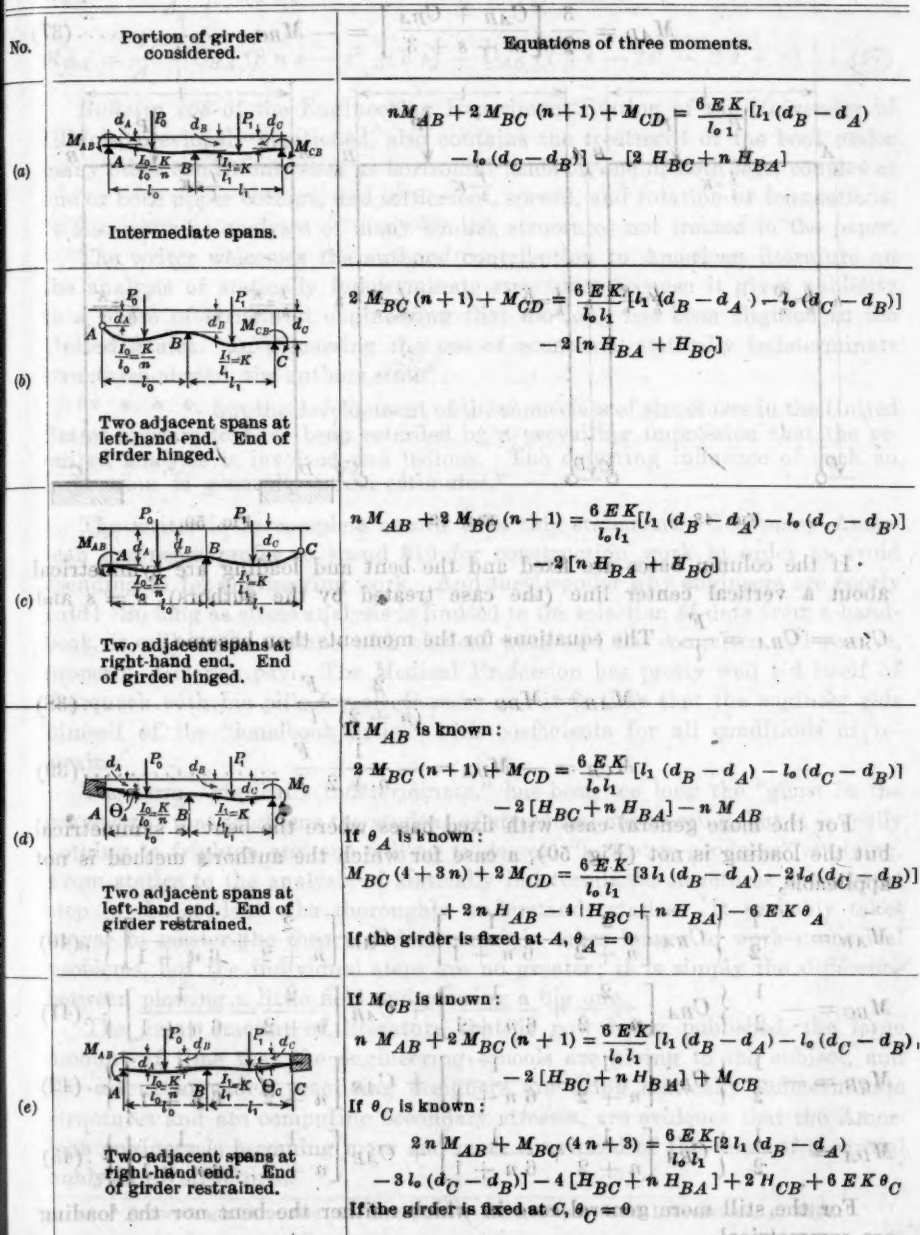 No.
Portion of girder
considered.
Equations of three moments.
(a)
M_AB d_A P_0 d_B P_1 d_C M_CB
A I_0/l_0 = K/n B I_1/l_1 = K C
l_0 l_1
Intermediate spans.
nM_AB + 2 M_BC (n + 1) + M_CD = 6 E K/l_0 l_1 [l_1 (d_B − d_A)
− l_0 (d_C − d_B)] − [2 H_BC + n H_BA]
(b)
P_0 P_1
A d_A B d_B M_CB d_C
I_0/l_0 = K/n I_1/l_1 = K C
l_0 l_1
Two adjacent spans at
left-hand end. End of
girder hinged.
2 M_BC (n + 1) + M_CD = 6 E K/l_0 l_1 [l_1 (d_B − d_A) − l_0 (d_C − d_B)]
− 2 [n H_BA + H_BC]
(c)
P_0 P_1
M_AB d_A d_B B d_C C
A I_0/l_0 = K/n I_1/l_1 = K
l_0 l_1
Two adjacent spans at
right-hand end. End
of girder hinged.
n M_AB + 2 M_BC (n + 1) = 6 E K/l_0 l_1 [l_1 (d_B − d_A) − l_0 (d_C − d_B)]
− 2 [n H_BA + H_BC]
(d)
d_A P_0 d_B P_1 d_C M_C
A θ_A I_0/l_0 = K/n B I_1/l_1 = K C
l_0 l_1
Two adjacent spans at
left-hand end. End of
girder restrained.
If M_AB is known:
2 M_BC (n + 1) + M_CD = 6 E K/l_0 l_1 [l_1 (d_B − d_A) − l_0 (d_C − d_B)]
− 2 [H_BC + n H_BA] − n M_AB
If θ_A is known:
M_BC (4 + 3 n) + 2 M_CD = 6 E K/l_0 l_1 [3 l_1 (d_B − d_A) − 2 l_0 (d_C − d_B)]
+ 2 n H_AB − 4 [H_BC + n H_BA] − 6 E K θ_A
If the girder is fixed at A, θ_A = 0
(e)
M_AB P_0 d_B P_1 d_C
A d_A I_0/l_0 = K/n B I_1/l_1 = K θ_C C
l_0 l_1
Two adjacent spans at
right-hand end. End
of girder restrained.
If M_CB is known:
n M_AB + 2 M_BC (n + 1) = 6 E K/l_0 l_1 [l_1 (d_B − d_A) − l_0 (d_C − d_B)]
− 2 [H_BC + n H_BA] + M_CB
If θ_C is known:
2 n M_AB + M_BC (4 n + 3) = 6 E K/l_0 l_1 [2 l_1 (d_B − d_A)
− 3 l_0 (d_C − d_B)] − 4 [H_BC + n H_BA] + 2 H_CB + 6 E K θ_C
If the girder is fixed at C, θ_C = 0